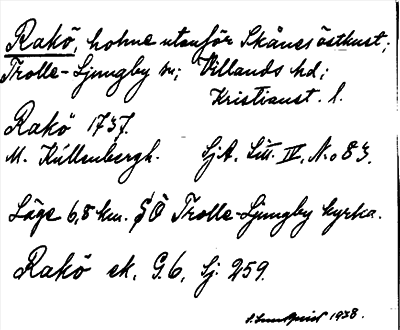 Rakö, holme utanför Skånes östkust;
Trolle-Ljungby sn; Villands hd;
Kristianst. l.
Rakö 1737.
M. Kúllenbergh. SjA. Litt. IV, N:o 83.
Läge 6,8 km. SÖ Trolle-Ljungby kyrka.
Rakö ek. G.6, Sj. 259.
1938.